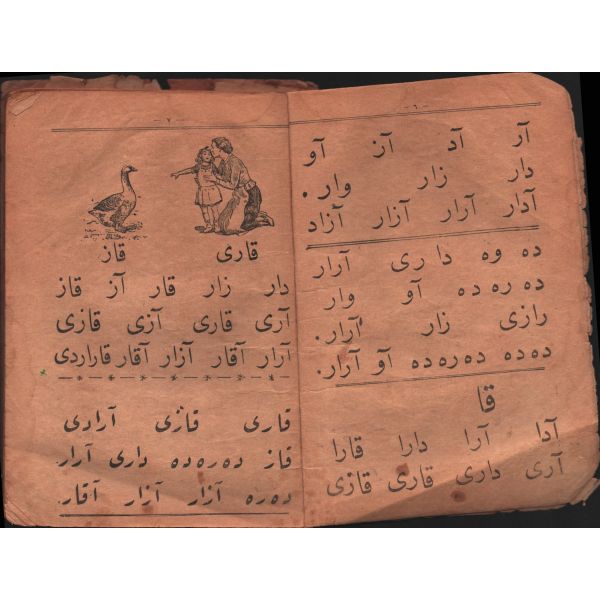 - ٦ -
آر آد آز آو
دار زار وار.
آدار آرار آزار آزاد
ده وه داری آرار
ده ره ده آو وار
رازی زار آرار.
ده ده ده ره ده آو آرار.
قا
آدا آرا دارا قارا
آری داری قاری قازی
- ٧ -
قاری قاز
دار زار قار آز قاز
آری قاری آزی قازی
آرار آقار آزار آقار قاراردی
قاری قازی آرادی
قاز ده ره ده داری آرار
ده ره آزار آزار آقار.